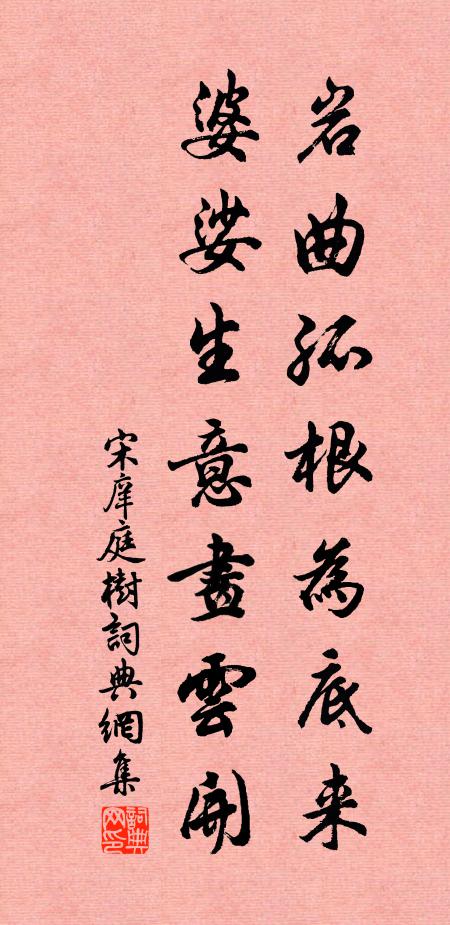 岩曲孤根為底来
婆娑生意畫雲開
宋庠庭樹詞典網集
詞典网印